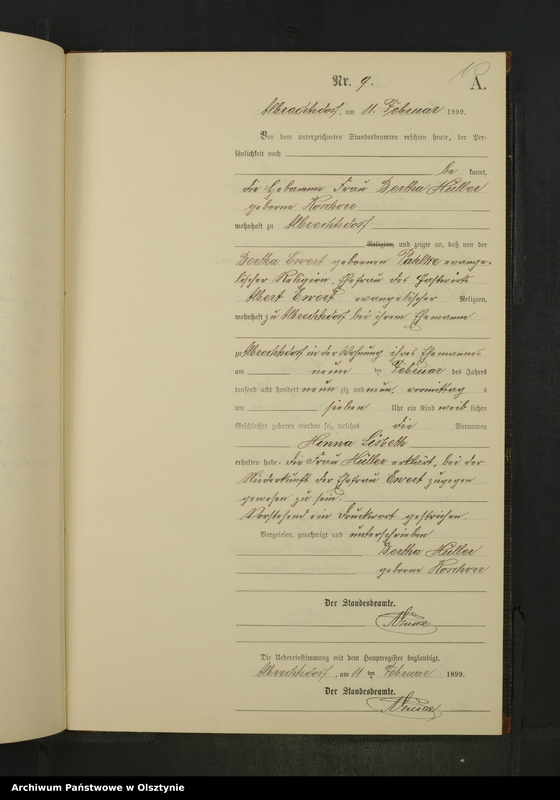 Nr. 9.
A.
Albrechtsdorf, am 11. Februar 1899.
Vor dem unterzeichneten Standesbeamten erschien heute, der Per-
sönlichkeit nach
be kannt,
die Hebamme Frau Bertha Müller
geborne Koschorr
wohnhaft zu Albrechtsdorf
Religion, und zeigte an, daß von der
Bertha Ewert gebornen Pahlke evange-
lischer Religion, Ehefrau des Gastwirts
Albert Ewert evangelischer Religion,
wohnhaft zu Albrechtsdorf bei ihrem Ehemanne
zu Albrechtsdorf in der Wohnung ihres Ehemannes
am neunten Februar des Jahres
tausend acht hundert neun zig und neun, vormittag s
um sieben Uhr ein Kind weib lichen
Geschlechts geboren worden sei, welches die Vornamen
Lisbeth
erhalten habe. die Frau Müller erklärt, bei der
Niederkunft der Ehefrau Ewert zugegen
gewesen zu sein.
Vorstehend ein Druckwort gestrichen.
Vorgelesen, genehmigt und unterschrieben
Bertha Müller
geborne Koschorr
Der Standesbeamte.
Die Uebereinstimmung mit dem Hauptregister beglaubigt.
Albrechtsdorf, am 11 ten Februar 1899.
Der Standesbeamte.
Archiwum Państwowe w Olsztynie